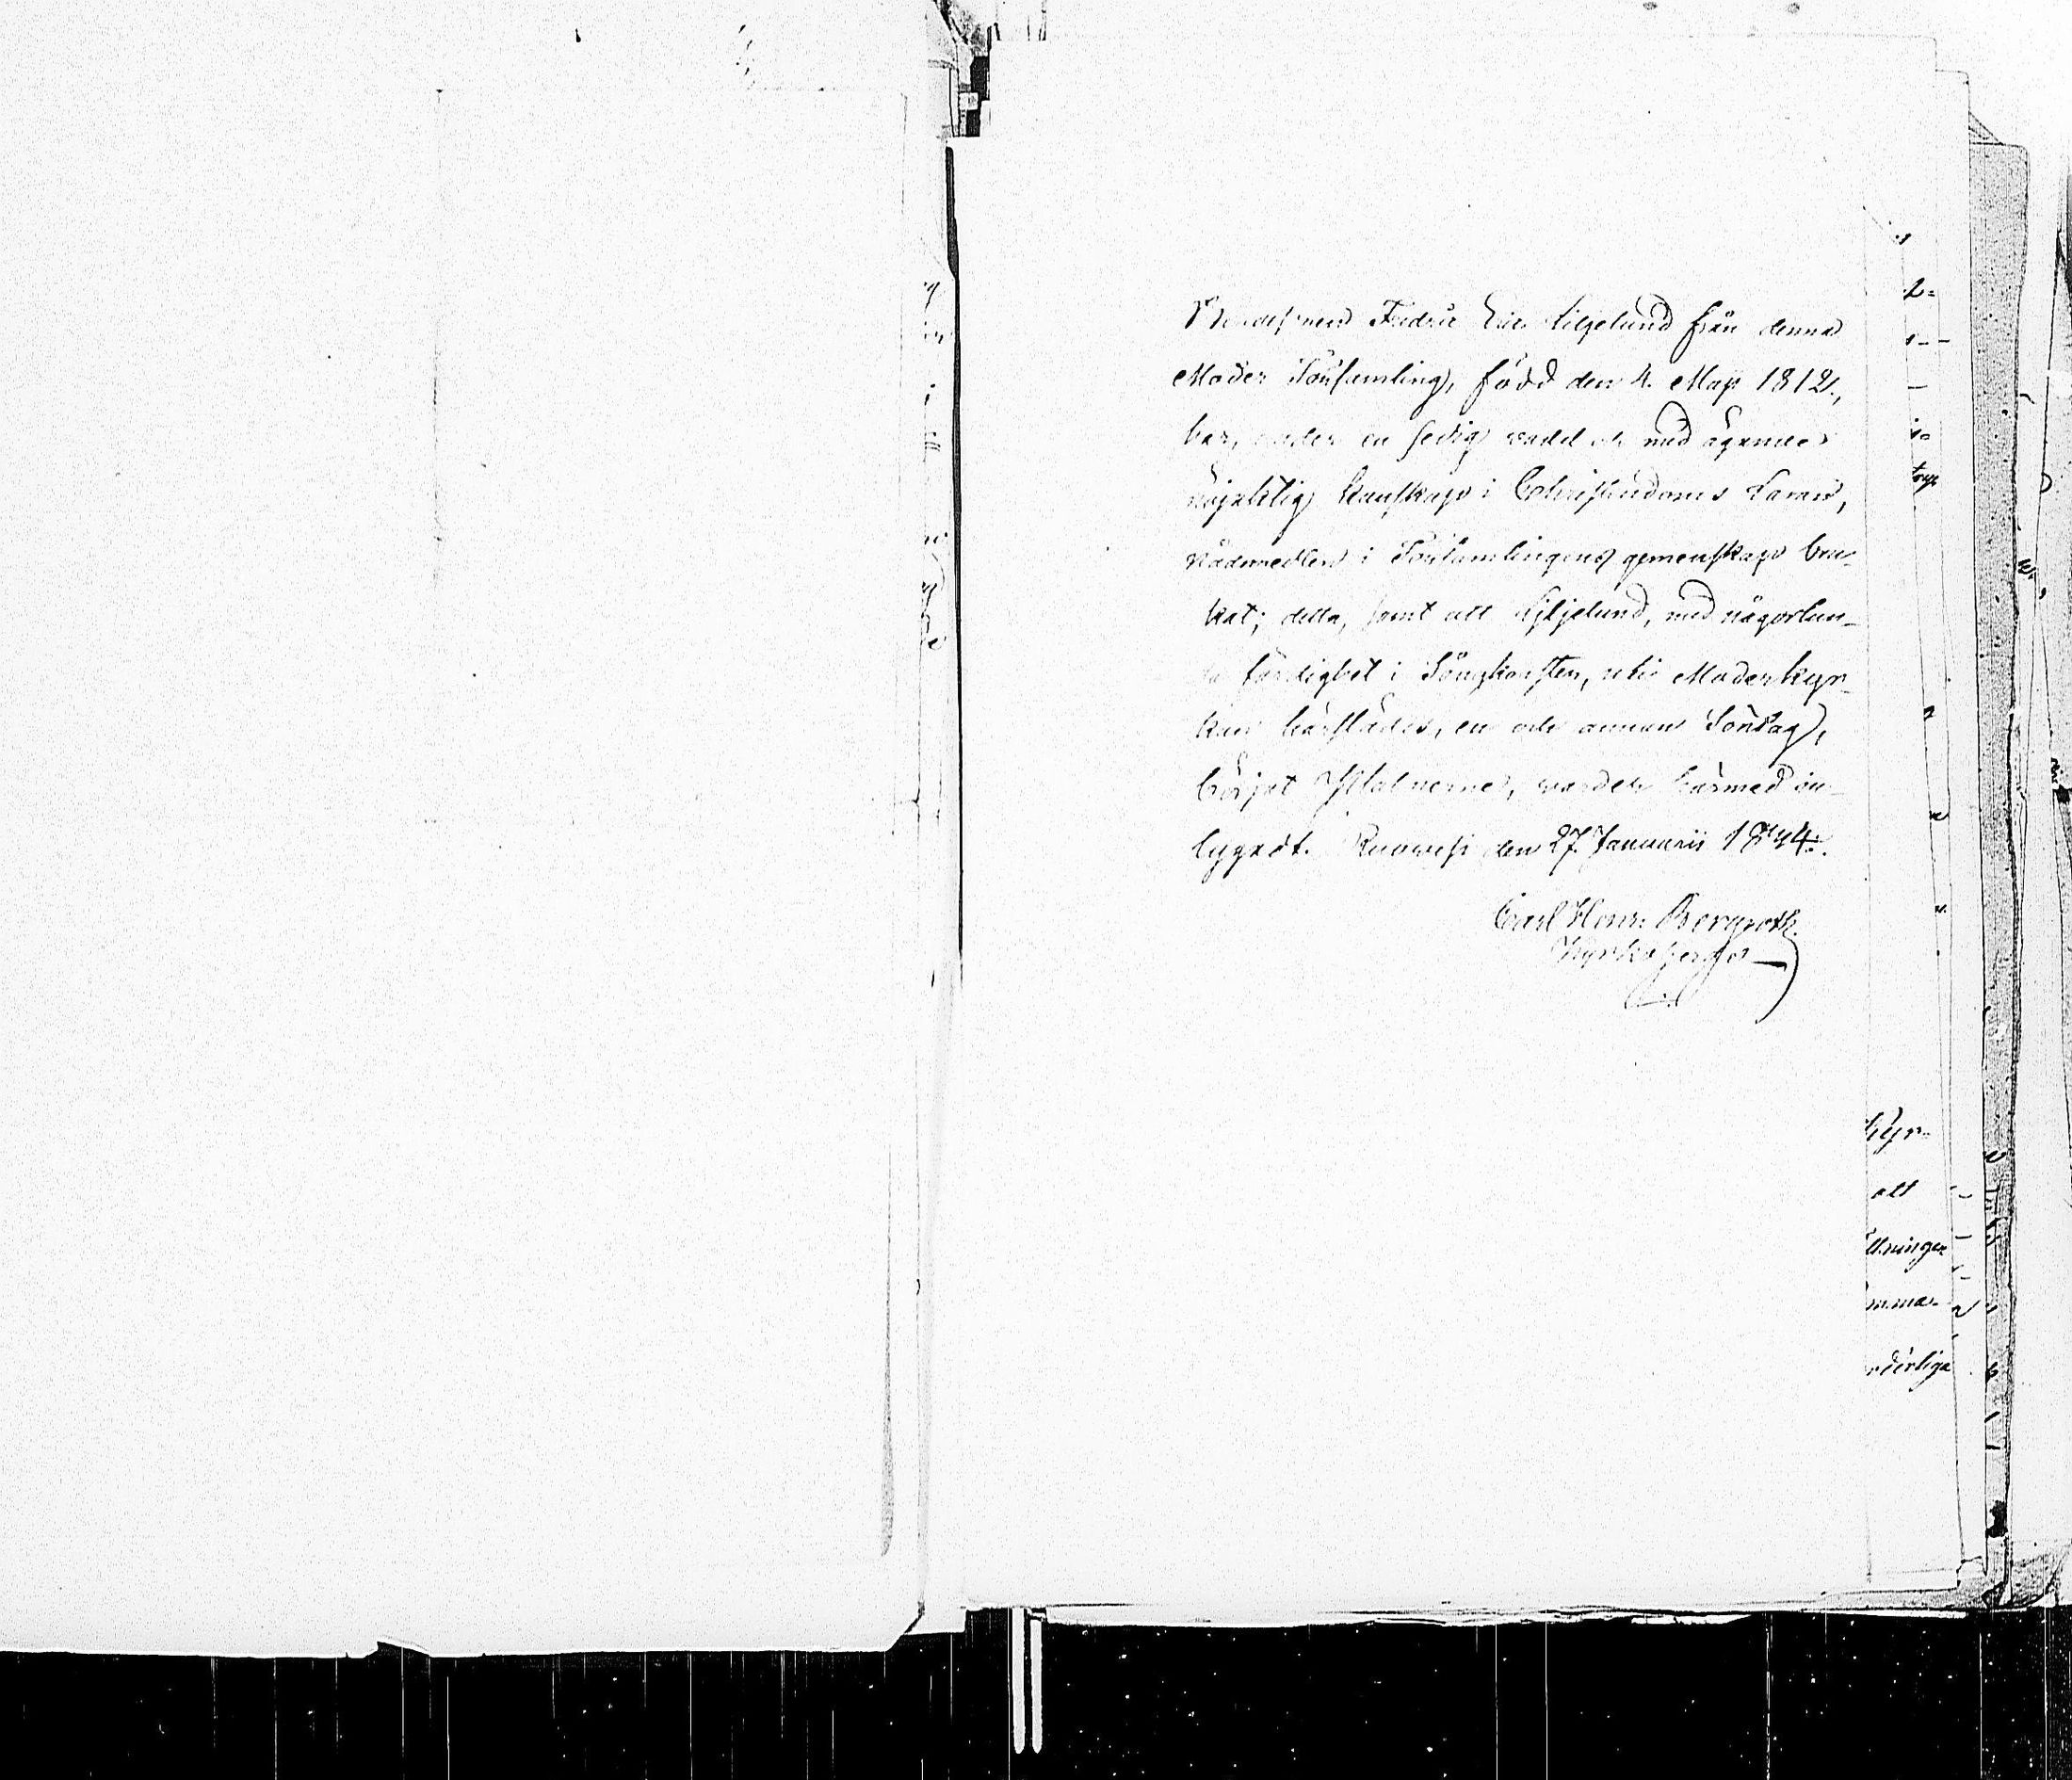 Fredric Eric Liljelund från denna
Moder Församling, född den 4. Maji 1812,
har, under en sedig vandel och med ägande
nöjaktig kunskap i Christendoms Läran,
nådemedlen i Församlingens gemenskap bru-
kat; detta, samt att Liljelund, med någorlun-
da färdighet i Sångkonsten, uti Moderkyr-
kan härstädes, en och annan Söndag,
börjat Psalmerne, varder härmed in-
tygadt. Kuowesi den 27. Januarii 1834.
Carl Henr: Bergroth.
Kyrkoherde
Kyr-
att
ttninger
mma-
nderliga